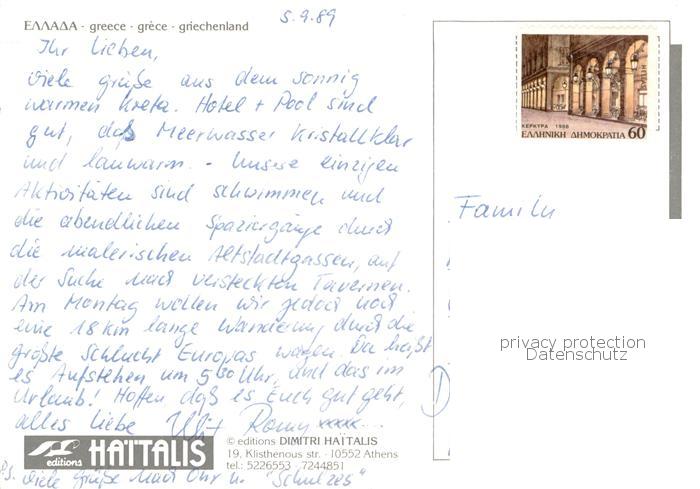 ΕΛΛΑΔΑ - greece - grèce - griechenland
5.9.89
Ihr Lieben,
viele grüße aus dem sonnig
warmen Kreta. Hotel + Pool sind
gut, das Meerwasser Kristallklar
und lauwarm. - Unsere einzigen
Aktivitäten sind schwimmen und
die abendlichen Spaziergänge durch
die malerischen Altstadtgassen, auf
der Suche nach versteckten Tavernen.
Am Montag wollen wir jedoch noch
eine 18 km lange Wanderung durch die
größte Schlucht Europas wagen. Da heißt
es Aufstehen um 5 30 Uhr, und das im
Urlaub! Hoffen daß es Euch gut geht,
alles liebe Romy
editions HAÏTALIS
© editions DIMITRI HAÏTALIS
19, Klisthenous str. - 10552 Athens
tel.: 5226553 - 7244851
PS. viele Grüße nach u. "Schulzes"
ΚΕΡΚΥΡΑ 1988
ΕΛΛΗΝΙΚΗ ΔΗΜΟΚΡΑΤΙΑ 60
Famili
privacy protection
Datenschutz